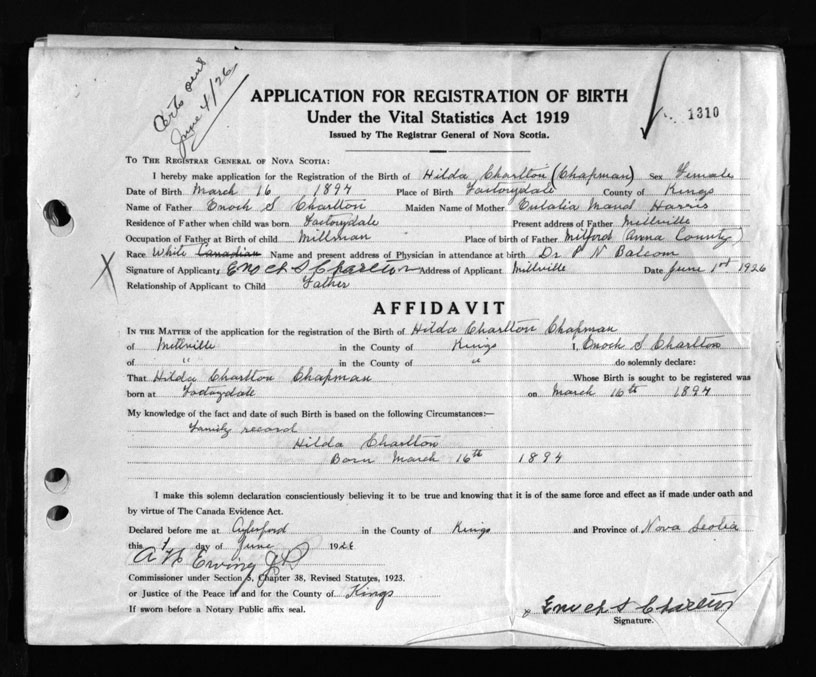 Certs sent
June 4/26
1310
APPLICATION FOR REGISTRATION OF BIRTH
Under the Vital Statistics Act 1919
Issued by The Registrar General of Nova Scotia.
TO THE REGISTRAR GENERAL OF NOVA SCOTIA:
I hereby make application for the Registration of the Birth of Hilda Charlton (Chapman) Sex Female
Date of Birth March 16 1894 Place of Birth Factorydale County of Kings
Name of Father Enoch S Charlton Maiden Name of Mother Eulalia Maud Harris
Residence of Father when child was born Factorydale Present address of Father Millville
Occupation of Father at Birth of child Millman Place of birth of Father Milford Anna County
Race White Canadian Name and present address of Physician in attendance at birth Dr P N Balcom
X Signature of Applicant Enoch S Charlton Address of Applicant Millville Date June 1st 1926
Relationship of Applicant to Child Father
AFFIDAVIT
IN THE MATTER of the application for the registration of the Birth of Hilda Charlton Chapman
of Millville in the County of Kings I, Enoch S Charlton
of " in the County of " do solemnly declare:
That Hilda Charlton Chapman Whose Birth is sought to be registered was
born at Factorydale on March 16th 1894
My knowledge of the fact and date of such Birth is based on the following Circumstances:—
Family record
Hilda Charlton
Born March 16th 1894
I make this solemn declaration conscientiously believing it to be true and knowing that it is of the same force and effect as if made under oath and
by virtue of The Canada Evidence Act.
Declared before me at Aylesford in the County of Kings and Province of Nova Scotia
this 1 day of June 1926
Ewing J P
Commissioner under Section 5, Chapter 38, Revised Statutes, 1923.
or Justice of the Peace in and for the County of Kings
If sworn before a Notary Public affix seal.
Enoch S Charlton
Signature.